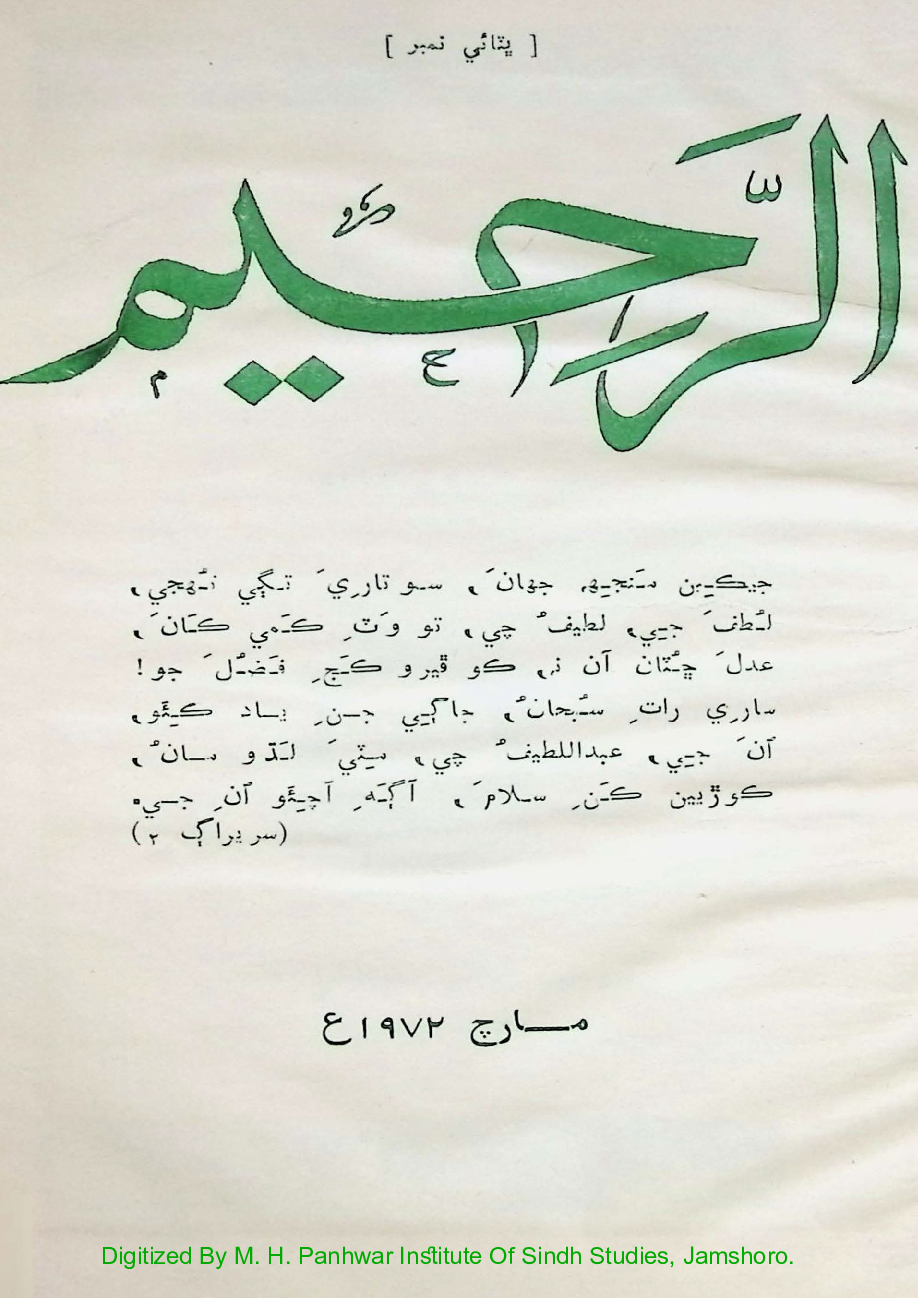 [ ڀٽائي نمبر ]
الرَّحيم
جيڪِين مَنجِهہ جهانَ، سو تارِيَ تِڳي نُهجي،
لُطفَ جِي، لطيفُ چي، تو وَٽِ ڪَمي ڪانَ،
عدلَ ڇُٽان آن نہ، ڪو ڦيرو ڪَجِ فَضُلَ جو!
سارِي راتِ سُبحانُ، جاڳِي جِنِ ياد ڪِئَو،
اُنَ جِي، عبداللطيفُ چي، مِٽيَ لَڌو سانُ،
ڪوڙيين ڪَنِ سلامَ، آڳَهِ اَچِئَو اُنِ جي.
(سريراڳ ٢)
مارچ ١٩٧٢ع
Digitized By M. H. Panhwar Institute Of Sindh Studies, Jamshoro.